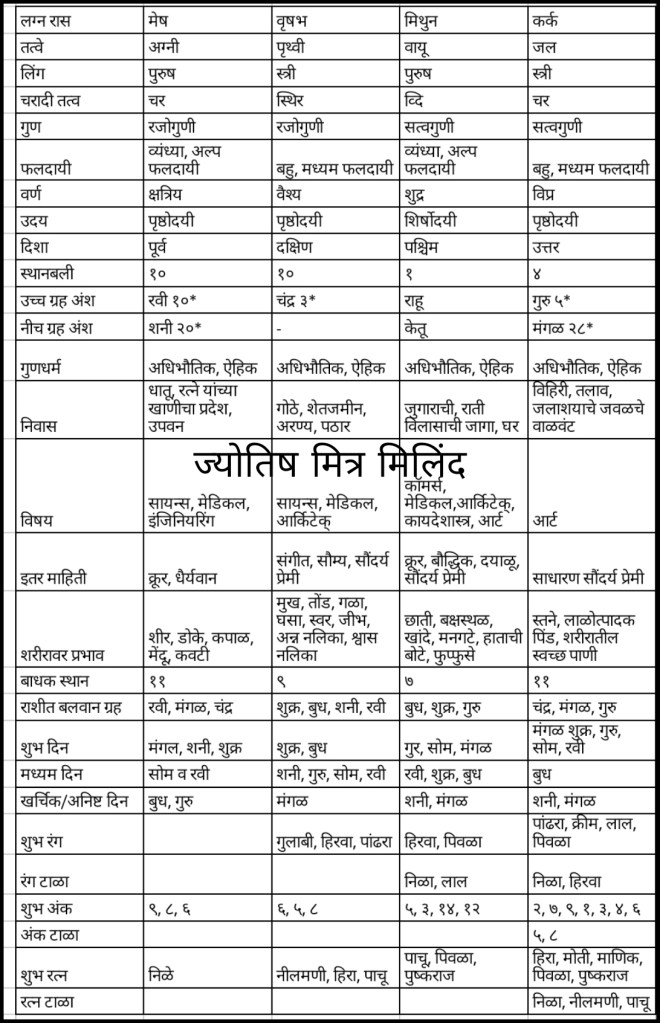 लग्न रास मेष वृषभ मिथुन कर्क
तत्वे अग्नी पृथ्वी वायू जल
लिंग पुरुष स्त्री पुरुष स्त्री
चरादी तत्व चर स्थिर व्दि चर
गुण रजोगुणी रजोगुणी सत्वगुणी सत्वगुणी
व्यंध्या, अल्प व्यंध्या, अल्प
फलदायी फलदायी बहु, मध्यम फलदायी फलदायी बहु, मध्यम फलदायी
वर्ण क्षत्रिय वैश्य शुद्र विप्र
उदय पृष्ठोदयी पृष्ठोदयी शिर्षोदयी पृष्ठोदयी
दिशा पूर्व दक्षिण पश्चिम उत्तर
स्थानबली १० १० १ ४
उच्च ग्रह अंश रवी १०* चंद्र ३* राहू गुरु ५*
नीच ग्रह अंश शनी २०* - केतू मंगळ २८*
गुणधर्म अधिभौतिक, ऐहिक अधिभौतिक, ऐहिक अधिभौतिक, ऐहिक अधिभौतिक, ऐहिक
धातू, रत्ने यांच्या विहिरी, तलाव,
खाणीचा प्रदेश, गोठे, शेतजमीन, जुगाराची, राती जलाशयाचे जवळचे
निवास उपवन अरण्य, पठार विलासाची जागा, घर वाळवंट
ज्योतिष मित्र मिलिंद
कॉमर्स,
सायन्स, मेडिकल, सायन्स, मेडिकल, मेडिकल,आर्किटेक्,
विषय इंजिनियरिंग आर्किटेक् कायदेशास्त्र, आर्ट आर्ट
संगीत, सौम्य, सौंदर्य क्रूर, बौद्धिक, दयाळू,
इतर माहिती क्रूर, धैर्यवान प्रेमी सौंदर्य प्रेमी साधारण सौंदर्य प्रेमी
मुख, तोंड, गळा,
घसा, स्वर, जीभ, छाती, बक्षस्थळ, स्तने, लाळोत्पादक
शीर, डोके, कपाळ, अन्न नलिका, श्वास खांदे, मनगटे, हाताची पिंड, शरीरातील
शरीरावर प्रभाव मेंदू, कवटी नलिका बोटे, फुप्फुसे स्वच्छ पाणी
बाधक स्थान ११ ९ ७ ११
राशीत बलवान ग्रह रवी, मंगळ, चंद्र शुक्र, बुध, शनी, रवी बुध, शुक्र, गुरु चंद्र, मंगळ, गुरु
मंगळ शुक्र, गुरु,
शुभ दिन मंगल, शनी, शुक्र शुक्र, बुध गुर, सोम, मंगळ सोम, रवी
मध्यम दिन सोम व रवी शनी, गुरु, सोम, रवी रवी, शुक्र, बुध बुध
खर्चिक/अनिष्ट दिन बुध, गुरु मंगळ शनी, मंगळ शनी, मंगळ
पांढरा, क्रीम, लाल,
शुभ रंग गुलाबी, हिरवा, पांढरा हिरवा, पिवळा पिवळा
रंग टाळा निळा, लाल निळा, हिरवा
शुभ अंक ९, ८, ६ ६, ५, ८ ५, ३, १४, १२ २, ७, ९, १, ३, ४, ६
अंक टाळा ५, ८
पाचू, पिवळा, हिरा, मोती, माणिक,
शुभ रत्न निळे नीलमणी, हिरा, पाचू पुष्कराज पिवळा, पुष्कराज
रत्न टाळा निळा, नीलमणी, पाचू